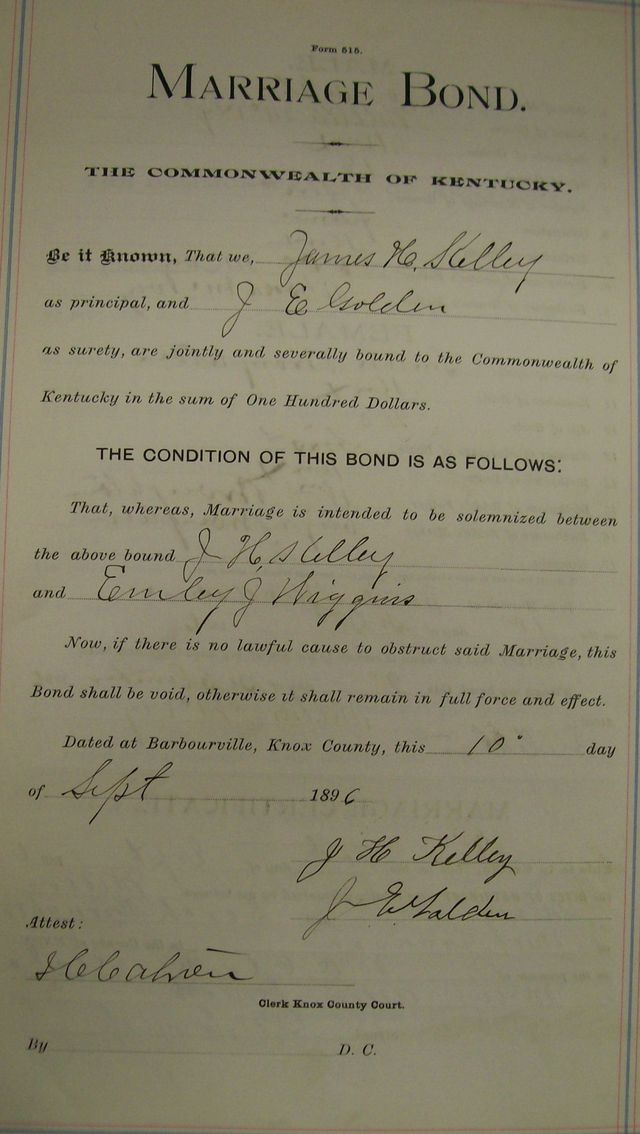 Form 515.
MARRIAGE BOND.
THE COMMONWEALTH OF KENTUCKY.
Be it Known, That we, James H. Kelley
as principal, and J E Golden
as surety, are jointly and severally bound to the Commonwealth of
Kentucky in the sum of One Hundred Dollars.
THE CONDITION OF THIS BOND IS AS FOLLOWS:
That, whereas, Marriage is intended to be solemnized between
the above bound J H. Kelley
and Emley J Wiggins
Now, if there is no lawful cause to obstruct said Marriage, this
Bond shall be void, otherwise it shall remain in full force and effect.
Dated at Barbourville, Knox County, this 10" day
of Sept 1896
J H Kelley
J E Golden
Attest:
Clerk Knox County Court.
By D. C.